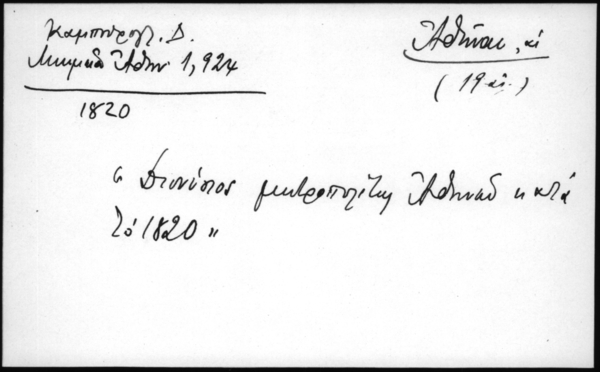 Καμπούρογλ. Δ.
Μνημεῖα Ἀθην 1,924
1820
Ἀθῆναι, αἱ
(19 αἰ.)
« Διονύσιος μητροπολίτης Ἀθηνῶν κατὰ
τὸ 1820 »